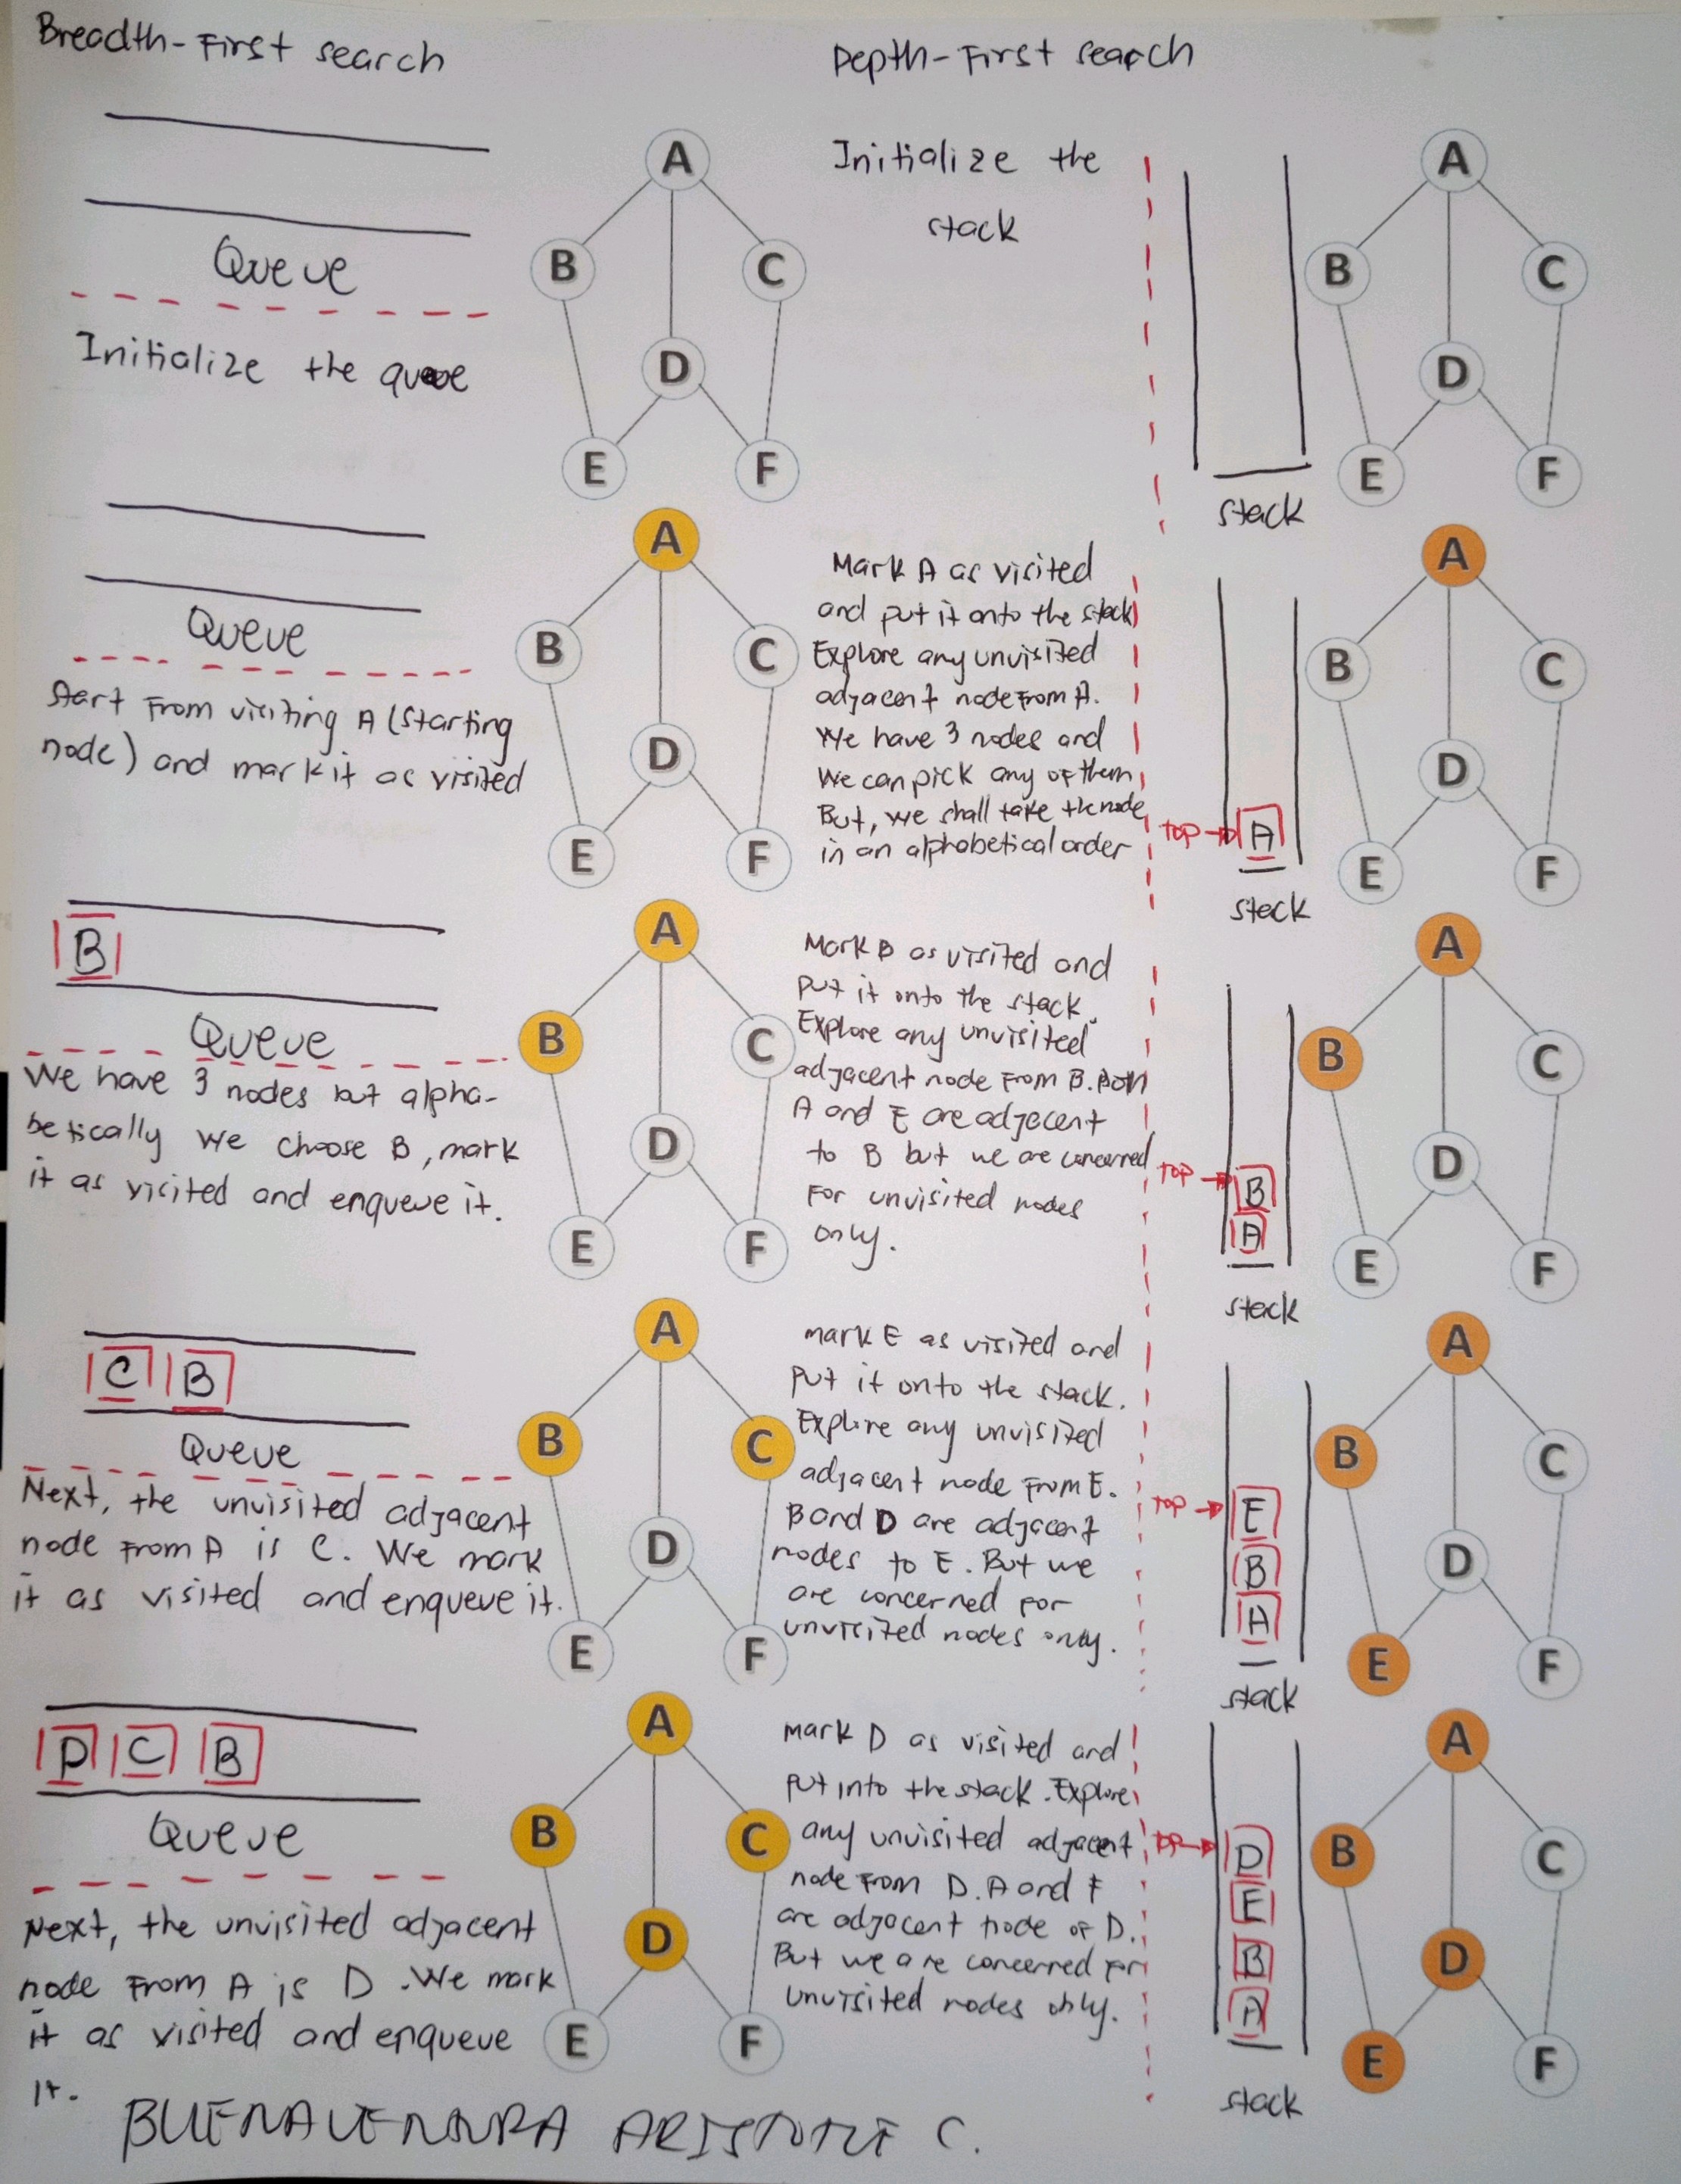 Breadth-First search
Queue
Initialize the queue
A
B
C
D
E
F
Queue
Start From visiting A (starting
node) and mark it as visited
A
B
C
D
E
F
B
Queue
We have 3 nodes but alpha-
betically we choose B, mark
it as visited and enqueue it.
A
B
C
D
E
F
C B
Queue
Next, the unvisited adjacent
node From A is C. We mark
it as visited and enqueue it.
A
B
C
D
E
F
D C B
Queue
Next, the unvisited adjacent
node From A is D. We mark
it as visited and enqueue
it.
A
B
C
D
E
F
Depth-First search
Initialize the
stack
stack
A
B
C
D
E
F
Mark A as visited
and put it onto the stack
Explore any unvisited
adjacent node From A.
We have 3 nodes and
We can pick any of them
But, we shall take the node
in an alphabetical order
TOP
A
stack
A
B
C
D
E
F
Mark B as visited and
put it onto the stack.
Explore any unvisited
adjacent node From B. Both
A and E are adjacent
to B but we are concerned
For unvisited nodes
only.
TOP
B
A
stack
A
B
C
D
E
F
mark E as visited and
put it onto the stack.
Explore any unvisited
adjacent node From E.
B and D are adjacent
nodes to E. But we
are concerned For
unvisited nodes only.
TOP
E
B
A
stack
A
B
C
D
E
F
mark D as visited and
put into the stack. Explore
any unvisited adjacent
node From D. A and F
are adjacent node of D.
But we are concerned For
unvisited nodes only.
TOP
D
E
B
A
stack
A
B
C
D
E
F
BUENAVENTURA ARISTOTLE C.